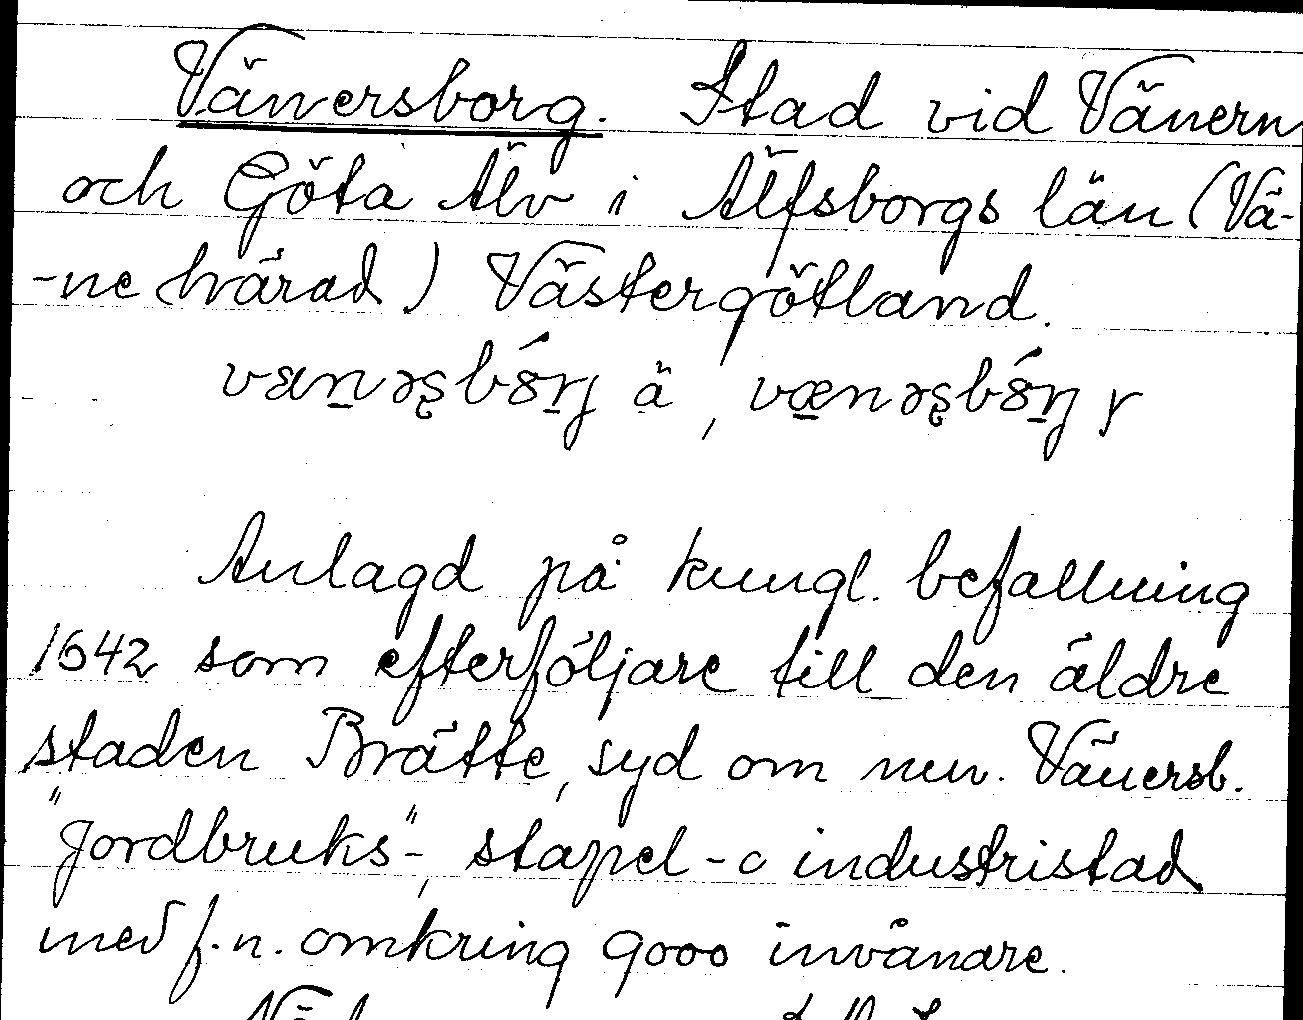 Vänersborg. Stad vid Vänern
och Göta Älv i Älfsborgs län (Vä-
-ne härad) Västergötland.
ä, y
Anlagd på kungl. befallning
1642 som efterföljare till den äldre
staden Brätte, syd om nuv. Vänersb.
"Jordbruks"-, stapel- o industristad
med f.n. omkring 9000 invånare.